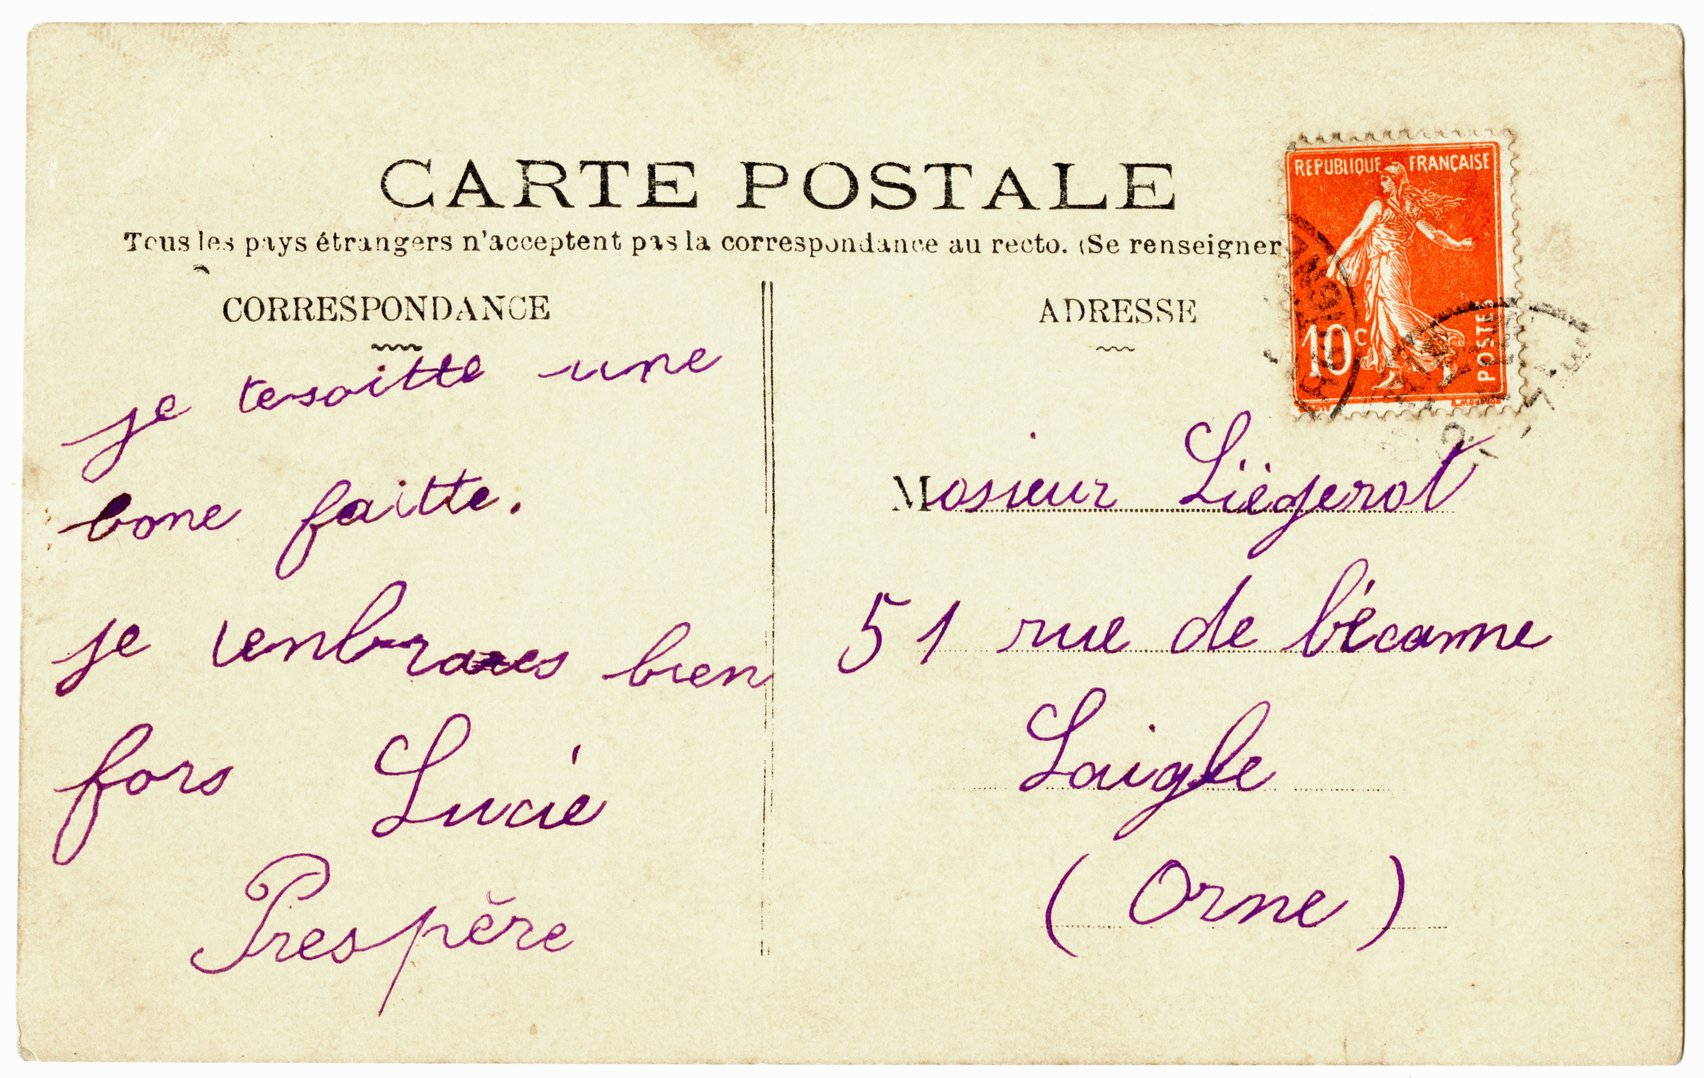 CARTE POSTALE
Tous les pays étrangers n'acceptent pas la correspondance au recto. (Se renseigner
CORRESPONDANCE
je tesoitte une
bone faitte.
je tenbrases bien
fors Lucie
Prespère
ADRESSE
REPUBLIQUE FRANÇAISE
10c
POSTES
Mosieur Liègerot
51 rue de bécanne
Laigle
(Orne)